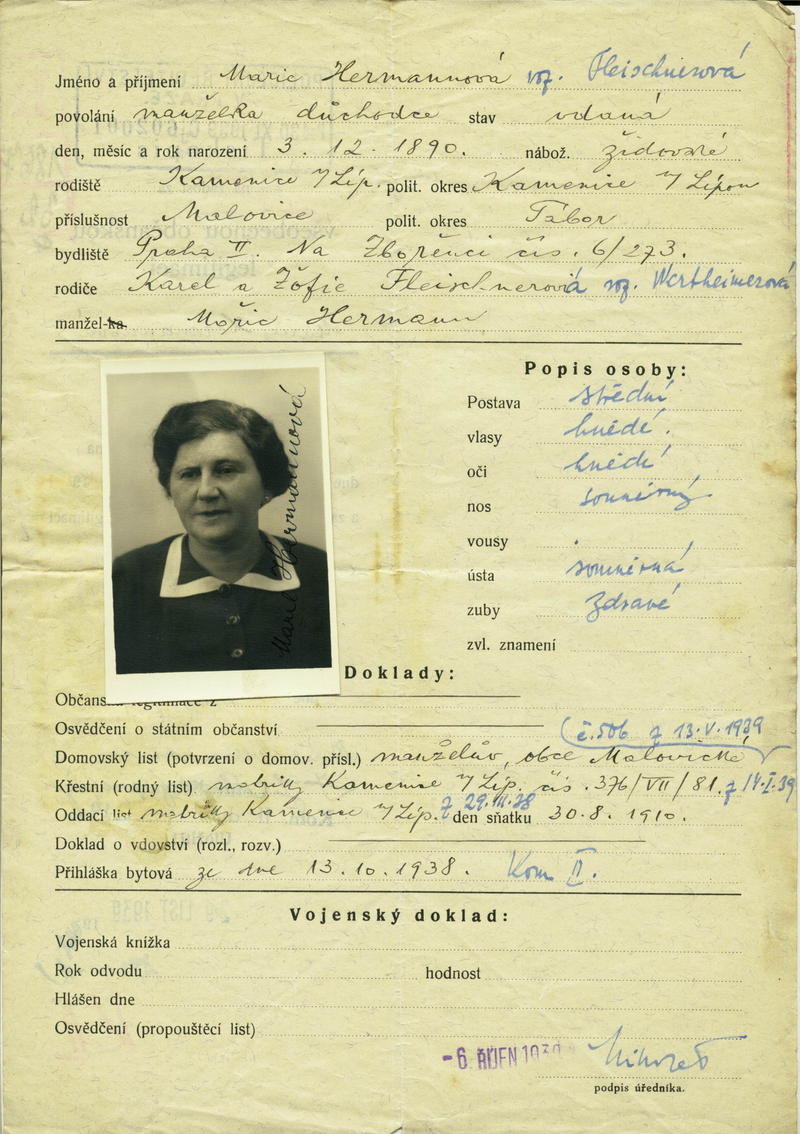 Jméno a příjmení Marie Hermannová roz. Fleischnerová
povolání manželka důchodce stav vdaná
den, měsíc a rok narození 3. 12. 1890. nábož. židovské
rodiště Kamenice n/Líp. polit. okres Kamenice n/Lípou
příslušnost Malovice polit. okres Tábor
bydliště Praha II. Na Zbořenci čís. 6/273.
rodiče Karel a Žofie Fleischnerová roz. Wertheimerová
manžel-ka. Mořic Hermann
Popis osoby:
Postava střední
vlasy hnědé.
oči hnědé
nos souměrný
vousy
ústa souměrná
zuby zdravé
zvl. znamení
Marie Hermannová
Doklady:
Občans
Osvědčení o státním občanství
(č. 506 z 13.V.1939
Domovský list (potvrzení o domov. přísl.) manželův, obce Malovické
Křestní (rodný list) matriky Kamenice n/Líp. čís. 376/VII/81. z 14.I.39
Oddací list matriky Kamenice n/Líp. z den sňatku 30.8.1910.
Doklad o vdovství (rozl., rozv.)
Přihláška bytová ze dne 13.10.1938. Kom II.
Vojenský doklad:
Vojenská knížka
Rok odvodu hodnost
Hlášen dne
Osvědčení (propouštěcí list)
-6. ŘÍJEN
podpis úředníka.